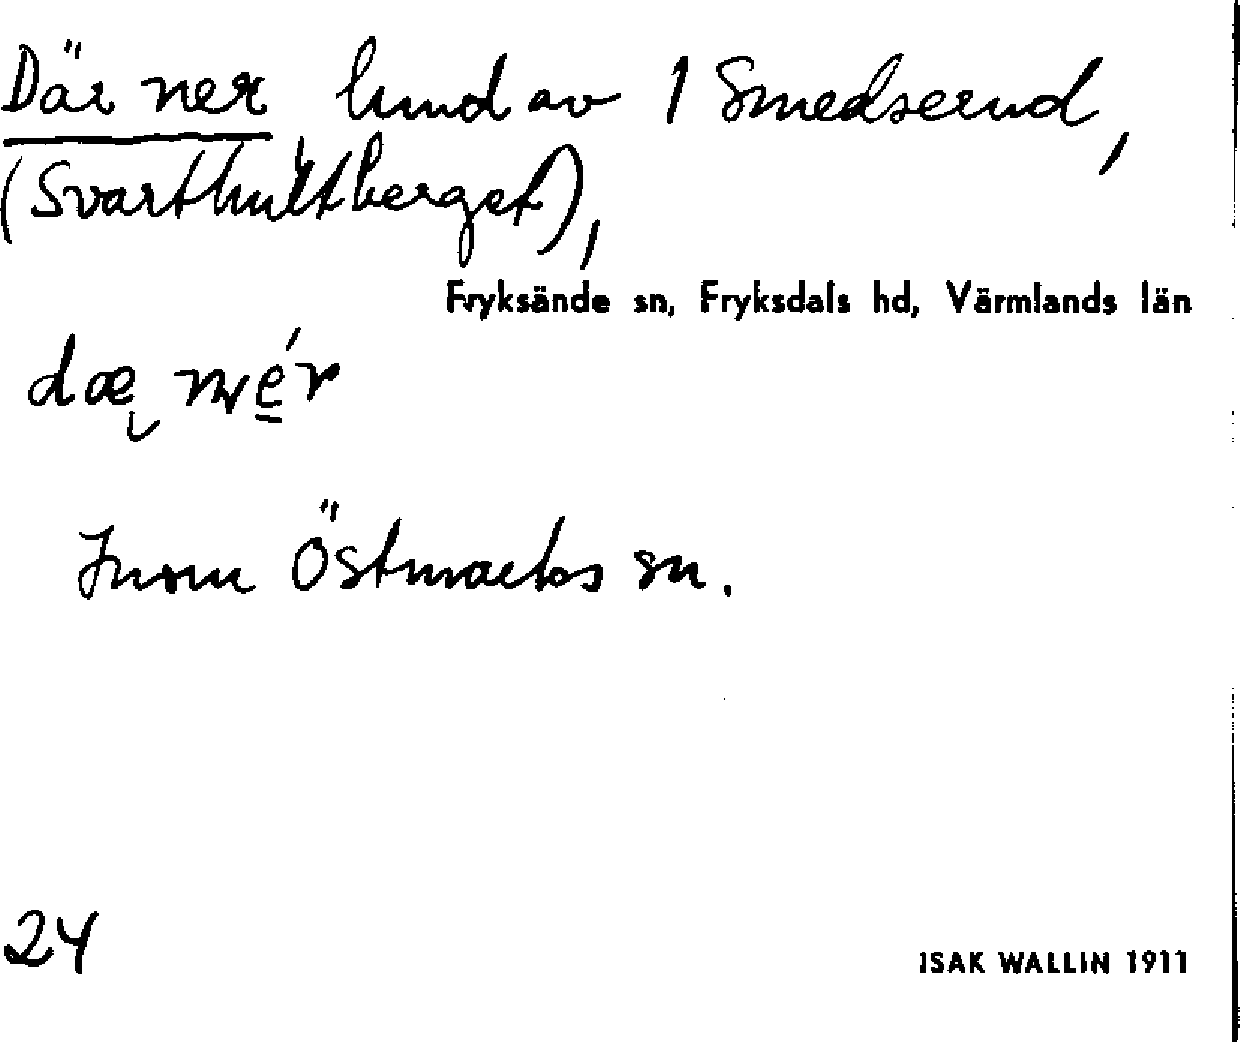 Där ner hmd av 1 Smedserud,
(Svarthultberget),
Fryksände sn, Fryksdals hd, Värmlands län
dæ
Inom Östmarks sn.
24
ISAK WALLIN 1911